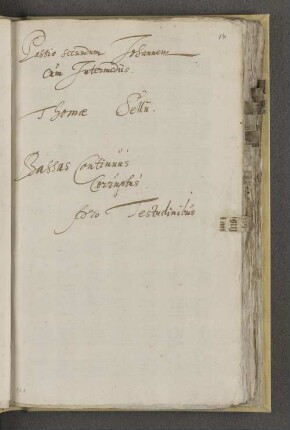 Passio secundum Johannem
Cum Intermediis.
Thomæ Selli.
Bassus Continuus
Corruptus
pro Testudinibus